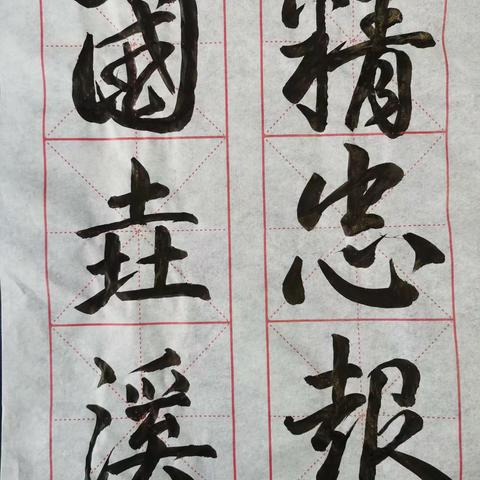 精忠報
國垚溪